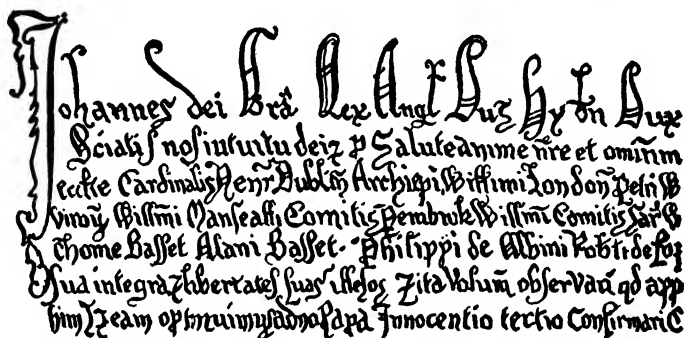 Johannes dei Grã Rex Angł Dns Hybn Dux
Sciatis nos intuitu dei ⁊ p Salute anime nre et omnium
eccłie Cardinalis Henr Dublin Archiepi, Willimi London Petri W
Willmi Marscalli Comitis Pembrok Willmi Comitis Sar W
Thome Basset Alani Basset. Philippi de Albini Robti de
sua integra ⁊ libertates suas illesas ⁊ ita Volum observari qd app
eam optinuimus a dno Papa Innocentio tertio Confirmari